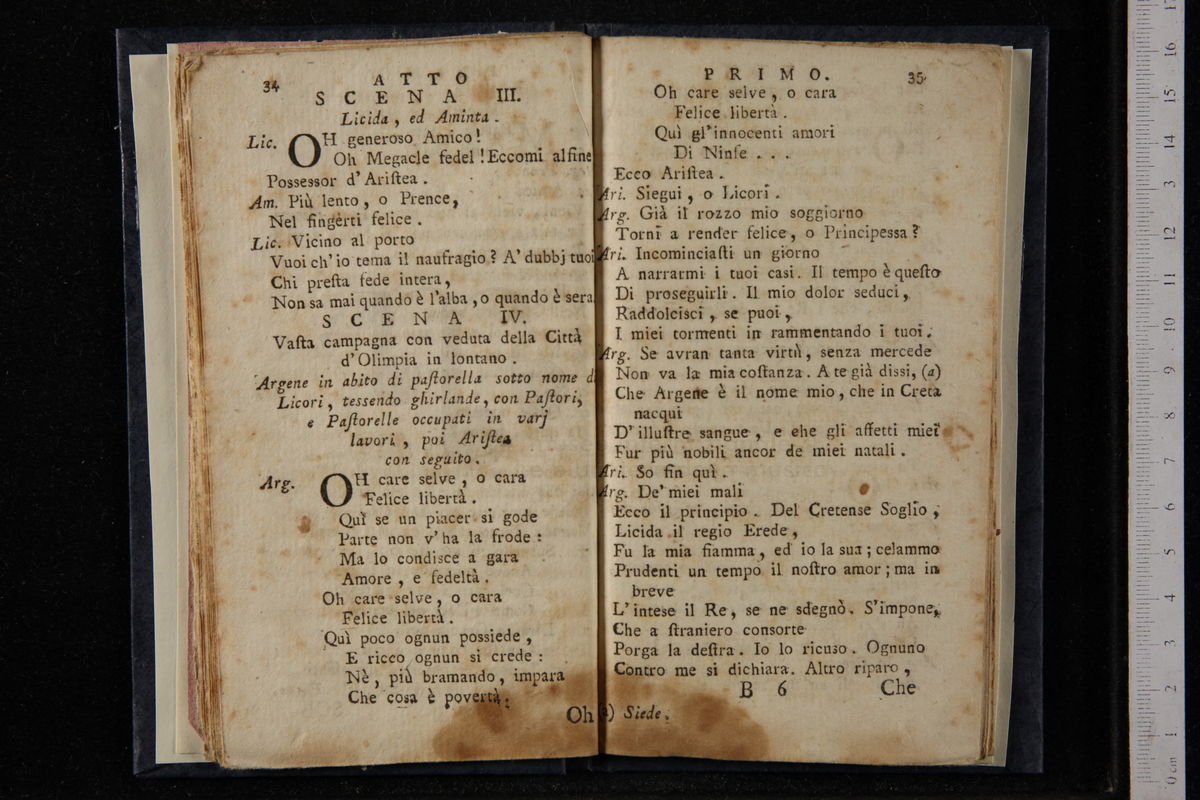 34
ATTO
SCENA III.
Licida, ed Aminta.
Lic. OH generoso Amico!
Oh Megacle fedel! Eccomi alfine
Possessor d'Ariſtea.
Am. Più lento, o Prence,
Nel fingerti felice.
Lic. Vicino al porto
Vuoi ch'io tema il naufragio? A' dubbj tuoi
Chi preſta fede intera,
Non sa mai quando è l'alba, o quando è sera.
SCENA IV.
Vaſta campagna con veduta della Città
d'Olimpia in lontano.
Argene in abito di paſtorella sotto nome di
Licori, tessendo ghirlande, con Paſtori,
e Paſtorelle occupati in varj
lavori, poi Ariſtea
con seguito.
Arg. OH care selve, o cara
Felice libertà.
Quì se un piacer si gode
Parte non v'ha la frode:
Ma lo condisce a gara
Amore, e fedeltà.
Oh care selve, o cara
Felice libertà.
Quì poco ognun possiede,
E ricco ognun si crede:
Nè, più bramando, impara
Che cosa è povertà.
Oh
PRIMO. 35
Oh care selve, o cara
Felice libertà.
Quì gl'innocenti amori
Di Ninfe . . .
Ecco Ariſtea.
Ari. Siegui, o Licori.
Arg. Già il rozzo mio soggiorno
Torni a render felice, o Principessa?
Ari. Incominciaſti un giorno
A narrarmi i tuoi casi. Il tempo è queſto
Di proseguirli. Il mio dolor seduci,
Raddolcisci, se puoi,
I miei tormenti in rammentando i tuoi.
Arg. Se avran tanta virtù, senza mercede
Non va la mia coſtanza. A te già dissi, (a)
Che Argene è il nome mio, che in Creta
nacqui
D'illuſtre sangue, e che gli affetti miei
Fur più nobili ancor de miei natali.
Ari. So fin quì.
Arg. De' miei mali
Ecco il principio. Del Cretense Soglio,
Licida il regio Erede,
Fu la mia fiamma, ed io la sua; celammo
Prudenti un tempo il noſtro amor; ma in
breve
L'intese il Re, se ne sdegnò. S'impone,
Che a ſtraniero consorte
Porga la deſtra. Io lo ricuso. Ognuno
Contro me si dichiara. Altro riparo,
B 6 Che
(a) Siede.
0 cm 1 2 3 4 5 6 7 8 9 10 11 12 13 14 15 16 17